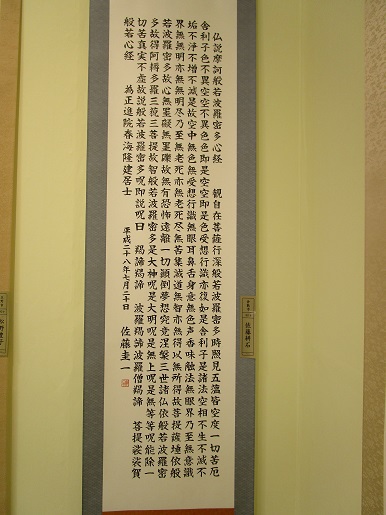 仏説摩訶般若波羅密多心経 観自在菩薩行深般若波羅密多時照見五蘊皆空度一切苦厄
舎利子色不異空空不異色色即是空空即是色受想行識亦復如是舎利子是諸法空相不生不滅不
垢不浄不増不減是故空中無色無受想行識無眼耳鼻舌身意無色声香味触法無眼界乃至無意識
界無無明亦無無明尽乃至無老死亦無老死尽無苦集滅道無智亦無得以無所得故菩提薩埵依般
若波羅密多故心無罣礙無罣礙故無有恐怖遠離一切顛倒夢想究竟涅槃三世諸仏依般若波羅密
多故得阿耨多羅三藐三菩提故智般若波羅密多是大神呪是大明呪是無上呪是無等等呪能除一
切苦真実不虚故説般若波羅密多呪即説呪曰 羯諦羯諦 波羅羯諦波羅僧羯諦 菩提娑婆賀
般若心経 為正進院春海隆建居士 平成二十八年七月二十日 佐藤圭一
佐藤耕石